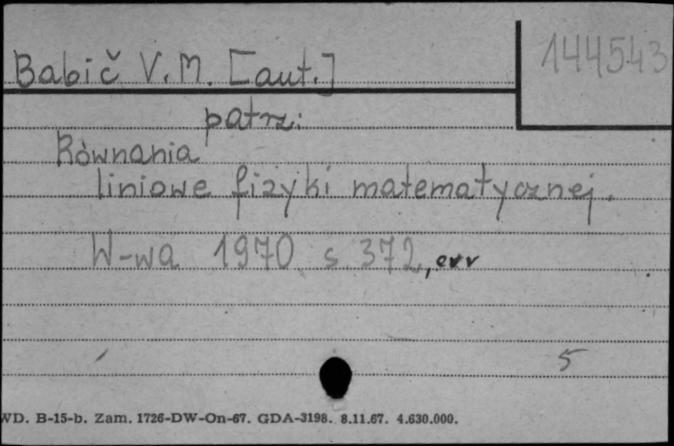 Babič V. M. [aut.]
144543
patrz:
Równania
liniowe fizyki matematycznej.
W-wa 1970 s. 372, err
5
WD. B-15-b. Zam. 1726-DW-On-67. GDA-3198. 8.11.67. 4.630.000.